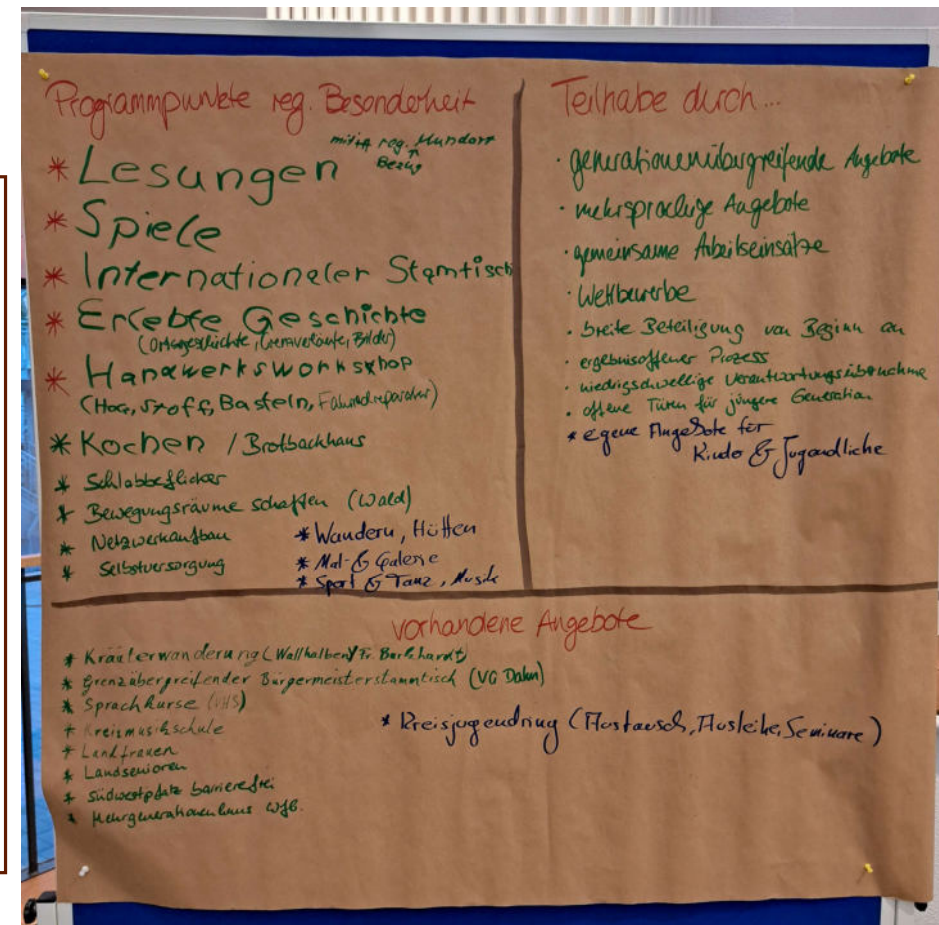 Programmpunkte reg. Besonderheit
* Lesungen mit reg. Mundart
Bezug
* Spiele
* Internationaler Stamtisch
* Erlebte Geschichte
(Ortsgeschichte, Bilder)
* Handwerksworkshop
(Holz, Stoff, Basteln, Fahrradreparatur)
* Kochen / Brotbackhaus
* Schlabbeflicker
* Bewegungsräume schaffen (Wald)
* Netzwerkaufbau
* Selbstversorgung
* Wandern, Hütten
* Mal- & Galerie
* Sport & Tanz, Musik
Teilhabe durch...
· generationenübergreifende Angebote
· mehrsprachige Angebote
· gemeinsame Arbeitseinsätze
· Wettbewerbe
· breite Beteiligung von Beginn an
· ergebnisoffener Prozess
· niedrigschwellige Verantwortungsübernahme
· offene Türen für jüngere Generation
* eigene Angebote für
Kinder & Jugendliche
vorhandene Angebote
* Kräuterwanderung (Wallhalben/Fr. Burkhardt)
* Grenzübergreifender Bürgermeisterstammtisch (VG Dahn)
* Sprachkurse (VHS)
* Kreismusikschule
* Landfrauen
* Landsenioren
* Südwestpfalz barrierefrei
* Mehrgenerationenhaus WfB.
* Kreisjugendring (Austausch, Ausleihe, Seminare)